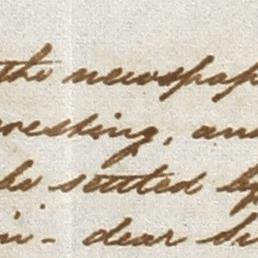 the newspap
eresting, and
be settled by
in - dear